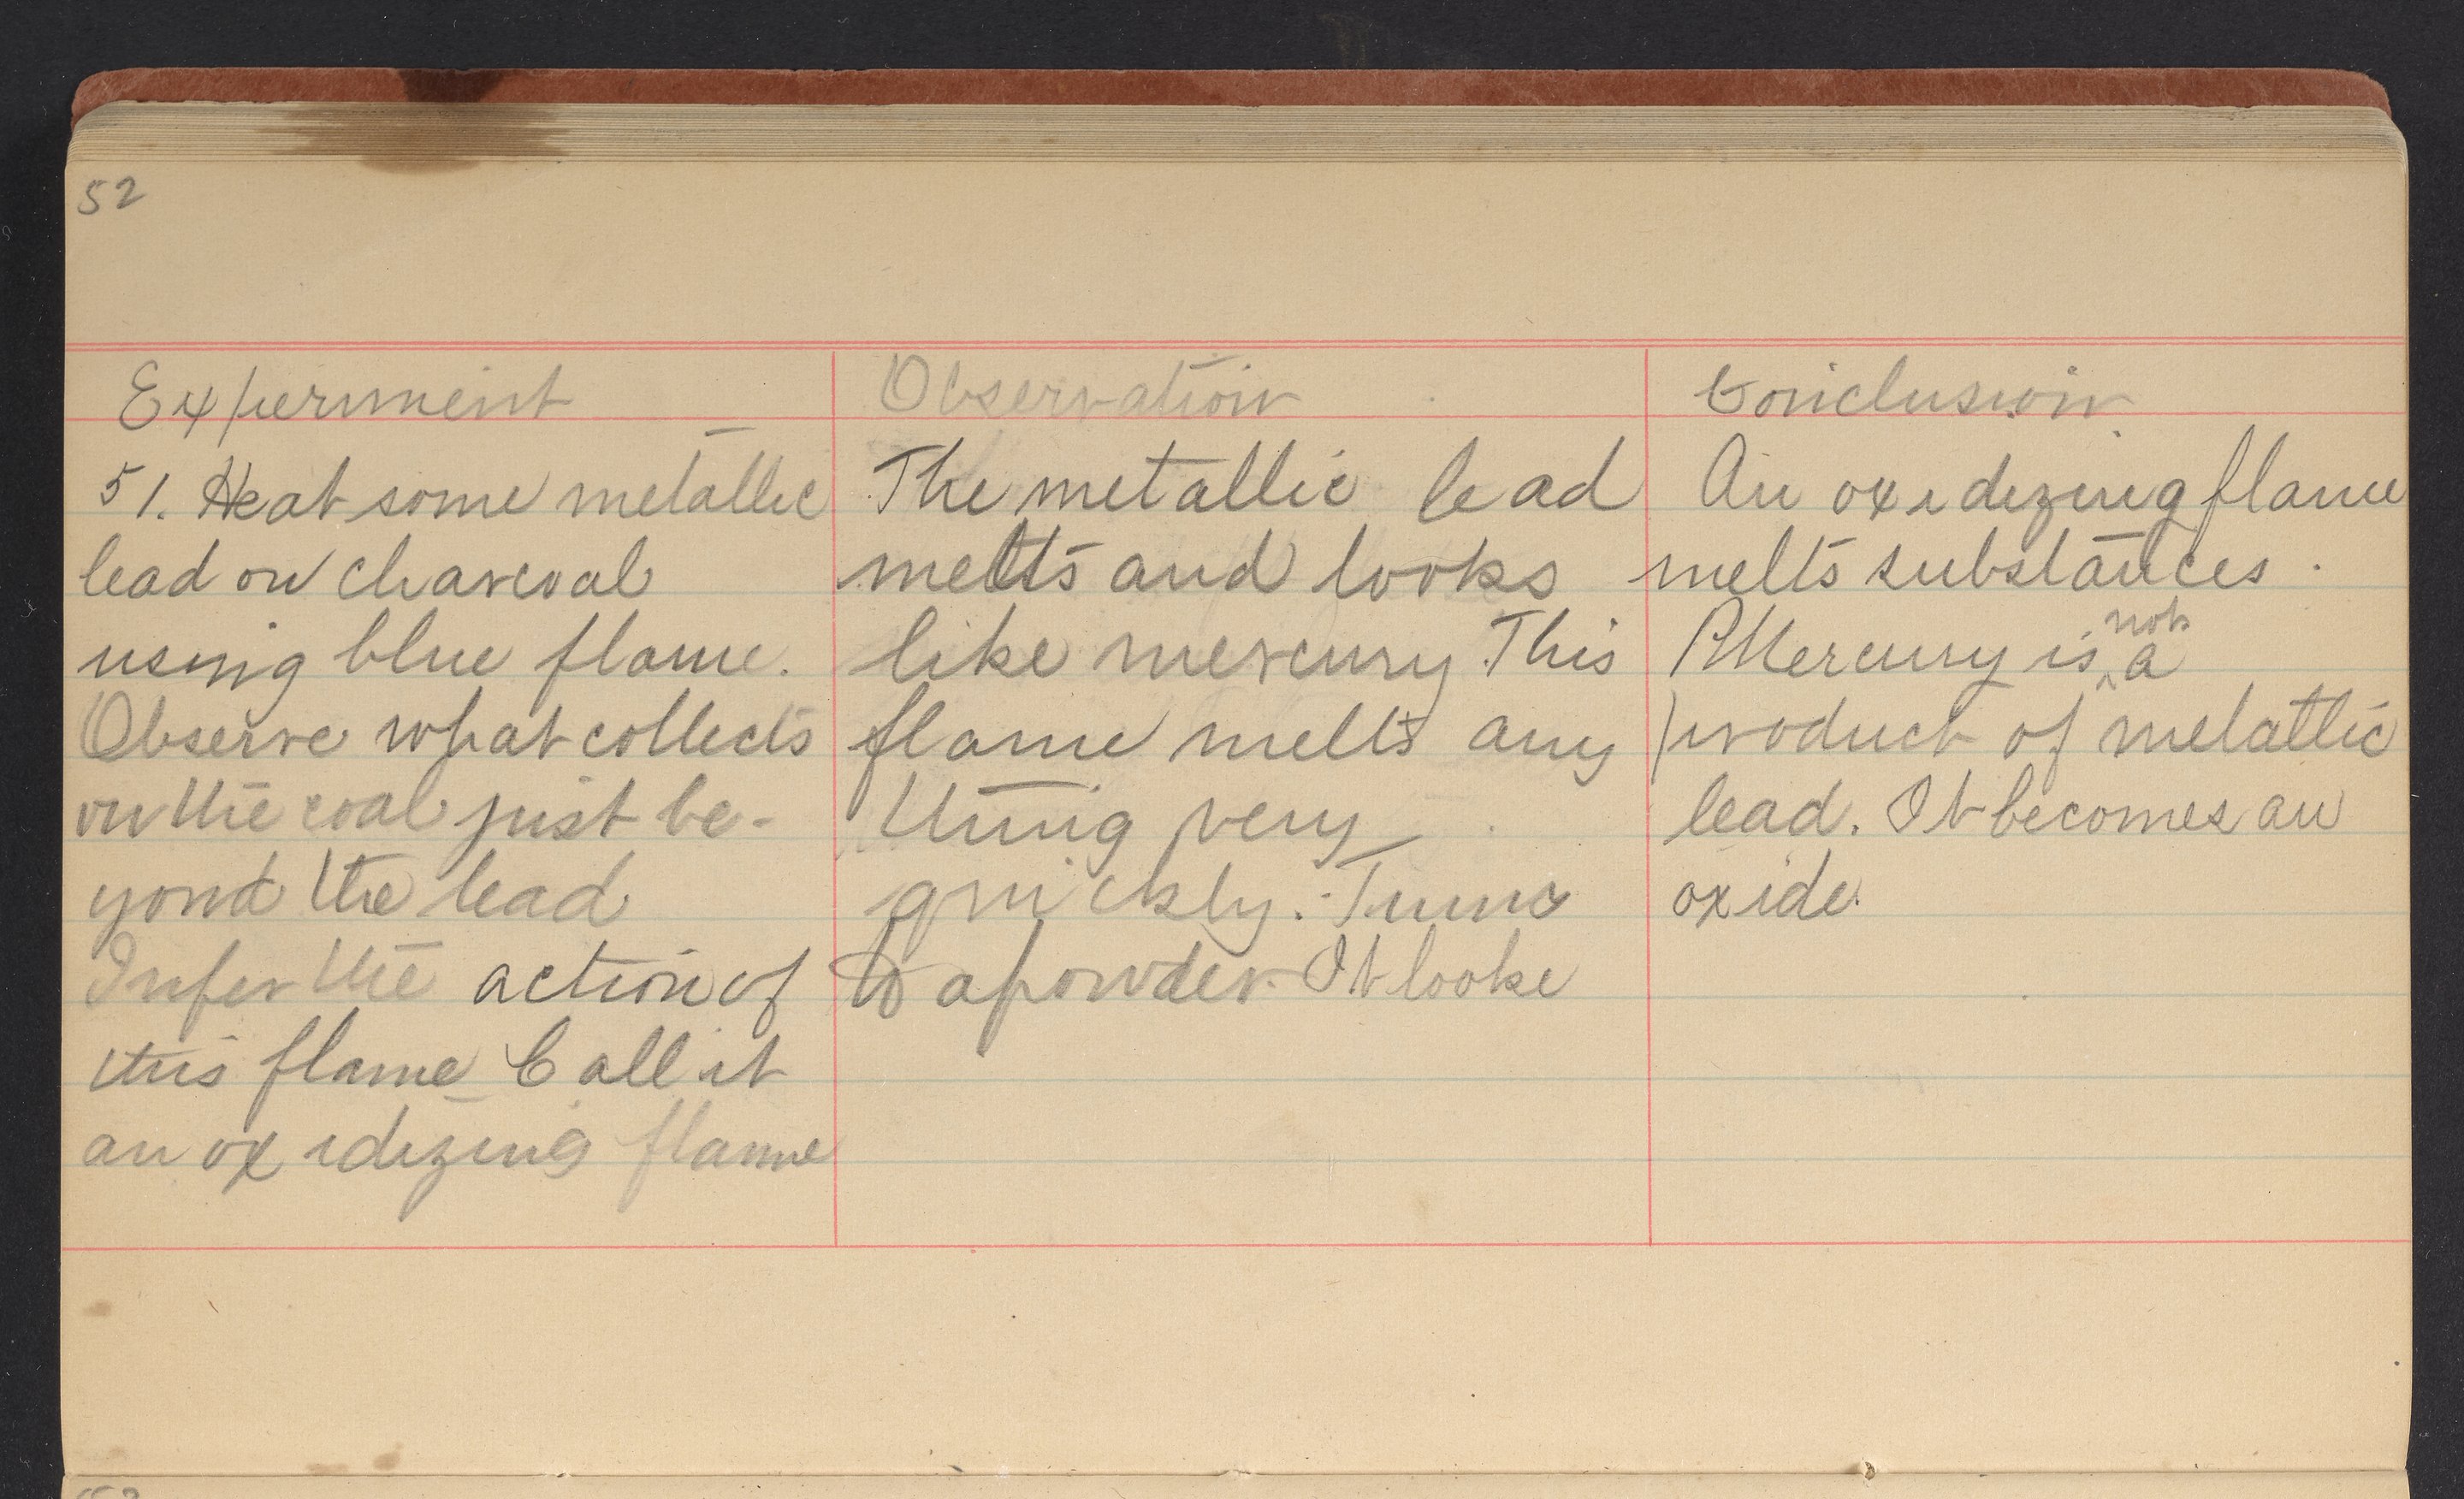 52
Experiment
51. Heat some metallic
lead on charcoal
using blue flame.
Observe what collects
on the coal just be-
yond the lead
Infer the action of
this flame Call it
an oxidizing flame
Observation
The metallic lead
melts and looks
like mercury This
flame melts any
thing very
quickly. Turns
to a powder. It looks
Conclusion
An oxidizing flame
melts substances.
Mercury is not a
product of metallic
lead. It becomes an
oxide.